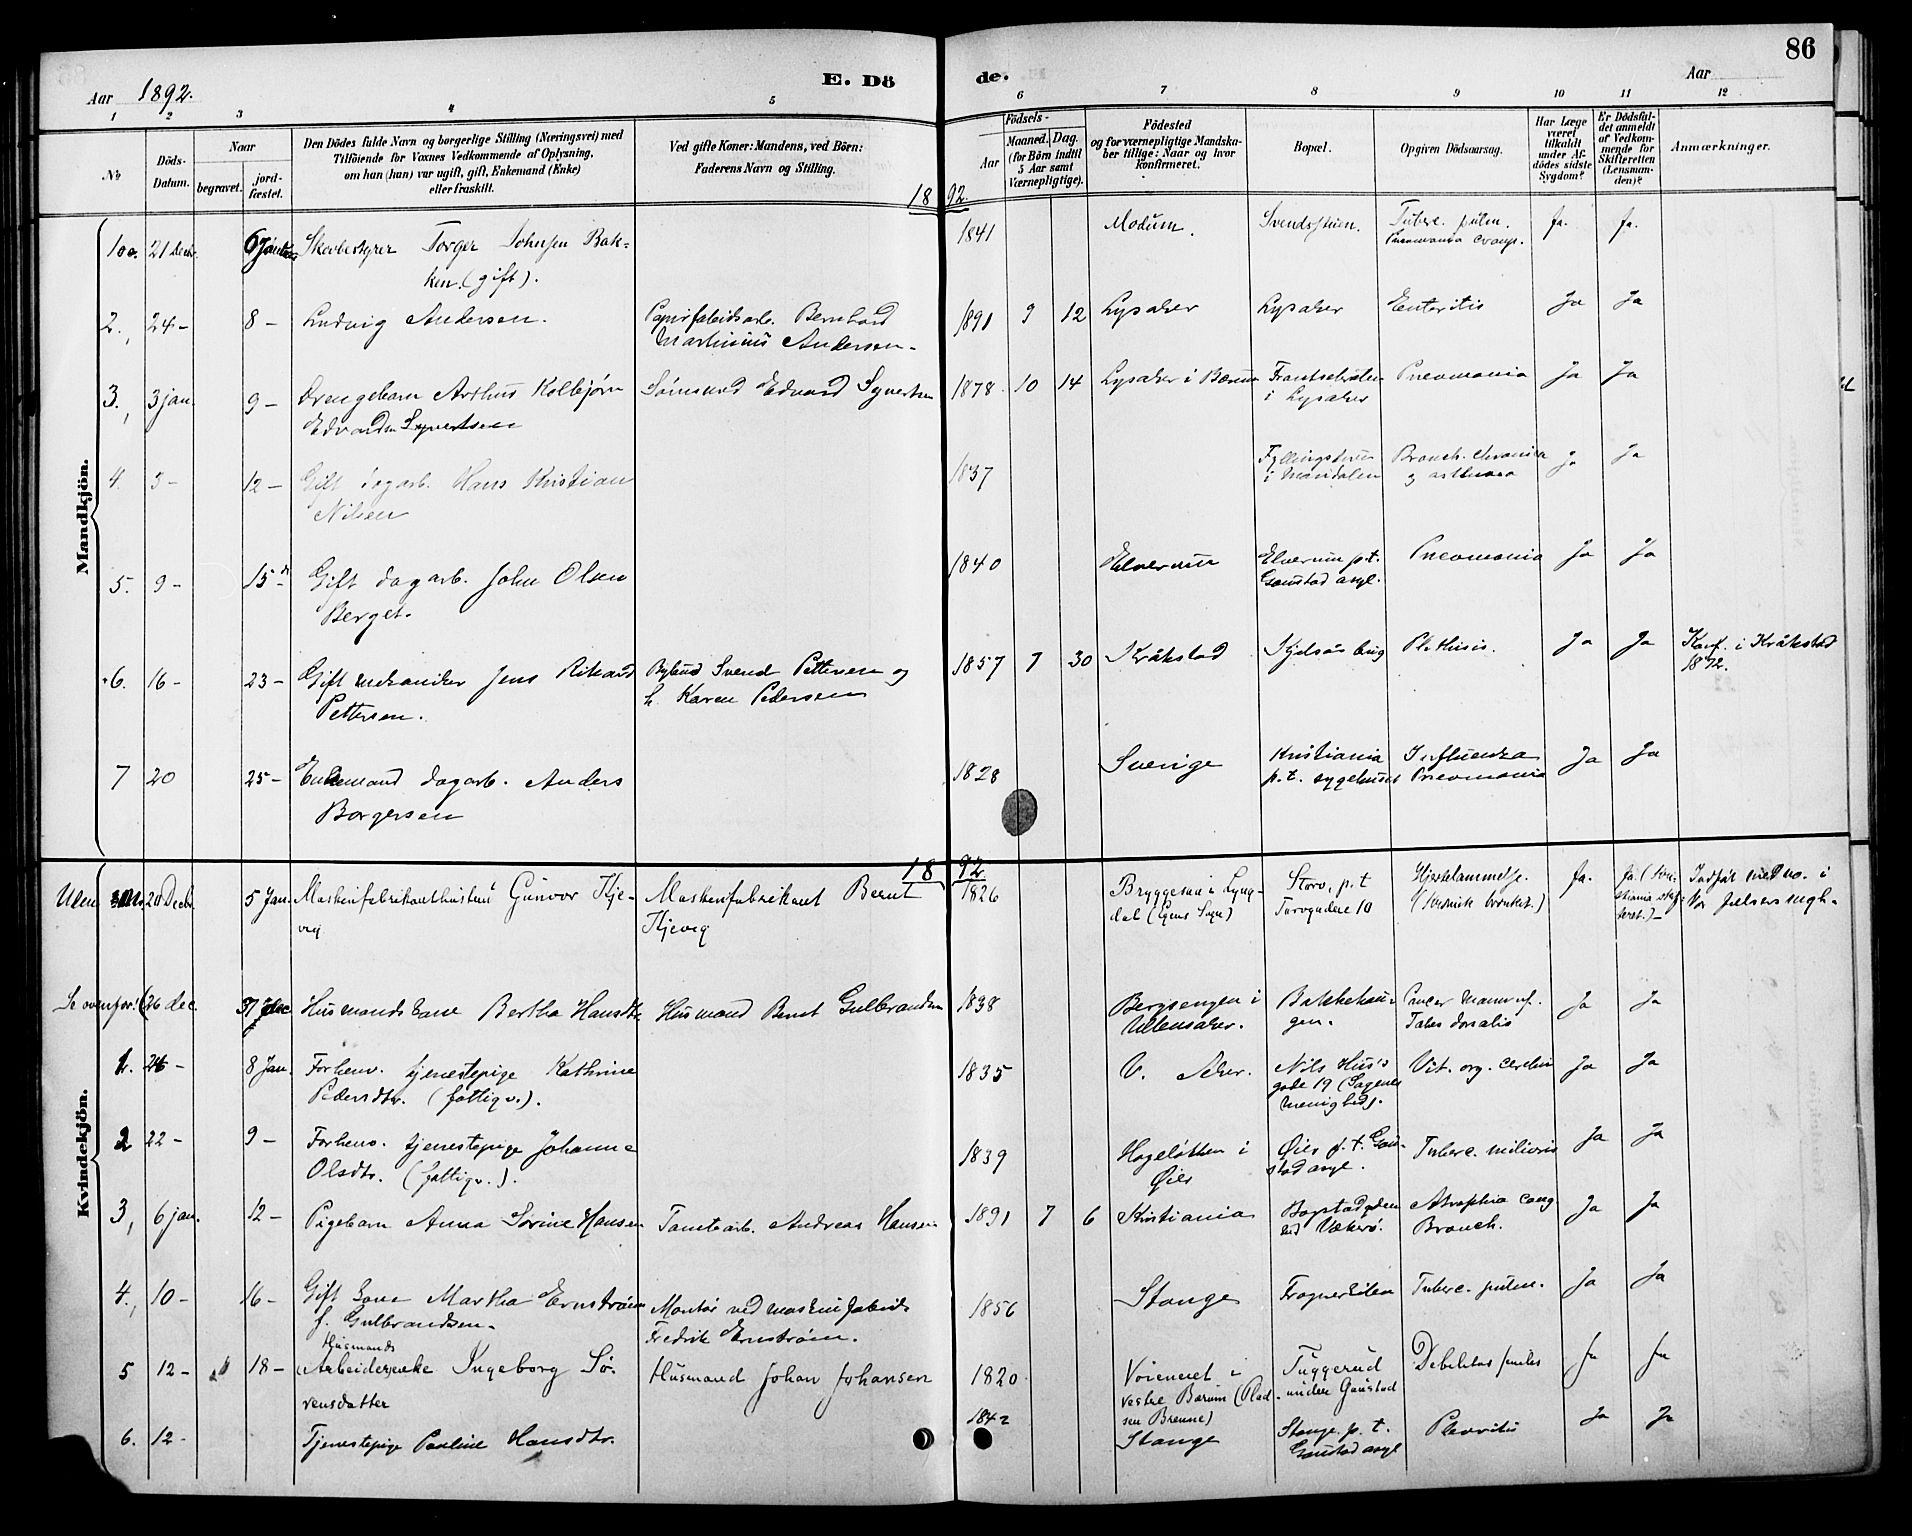 86
E. Dö de.
Aar 1892.
Aar
1 2 3 4 5 6 7 8 9 10 11 12
No
Döds-
Datum.
Naar
begravet.
jord-
fæstet.
Den Dödes fulde Navn og borgerlige Stilling (Næringsvei) med
Tilföiende for Voxnes Vedkommende af Oplysning,
om han (hun) var ugift, gift, Enkemand (Enke)
eller fraskilt.
Ved gifte Koner: Mandens, ved Börn:
Faderens Navn og Stilling.
Födsels-
Aar
Maaned.
Dag.
(for Börn indtil
5 Aar samt
Værnepligtige).
Födested
og for værnepligtige Mandska-
ber tillige: Naar og hvor
konfirmeret.
Bopæl.
Opgiven Dödsaarsag.
Har Læge
været
tilkaldt
under Af-
dödes sidste
Sygdom?
Er Dödsfal-
det anmeldt
af Vedkom-
mende for
Skifteretten
(Lensman-
den)?
Anmærkninger.
18 92.
Mandkjön.
21 Decbr. 6 Skovbestyrer Torger Johnsen Bak-
ken. (gift).
1841 Modum. Svendsstuen. Tuberc. pulm. ja. ja.
Pneumonia
2, 24 - 8 - Ludvig Andersen. Papirfabrikarb. Bernhard
Martinius Andersen.
1891 9 12 Lysaker Lysaker Enteritis Ja Ja
3, 3 jan. 9 - Drengebarn Arthur Kolbjørn
Edvardsen Syvertsen
Edvard Syvertsen
1878 10 14 Lysaker i Bærum
i Lysaker
Pneomonia Ja Ja
4. 3 - 12 - Gift dagarb. Hans Kristian
Nilsen
1837
i Maridalen
Bronch. chronica
og asthma
Ja Ja
5. 9 - 15 - Gift dagarb. John Olsen
Berget.
1840 Elverum Elverum p.t.
Gaustad asyl.
Pneomonia Ja Ja
6. 16 - 23 - Gift mekaniker Jens Rikard
Pettersen.
Bybud Svend Pettersen og
h. Karen Pedersen
1857 7 30 Kråkstad Kjelsås brug Phthisis. Ja Ja Konf. i Kråkstad
1872.
7 20 25 - Enkemand dagarb. Anders
Borgersen
1828 Sverige Kristiania
p.t. sygehuset
Influenza
Pneomonia
Ja Ja
18 92.
Kvindekjön.
Uden No. 20 Decbr. 5 Jan. Maskinfabrikanthustru Gunvor Kje-
vig
Maskinfabrikant Bernt
Kjevig
1826 Bryggesaa i Lyng-
dal (Egens Sogn)
Storv. p.t
Torvgaden 10
Hjertelammelse.
(kronisk bronkit.)
ja. ja. (Kri-
stiania skif-
teret.) -
Indført med no. i
Vor frelsers megh.
Se ovenfor! 26 dec. Husmandskone Bertha Hansdtr. Husmand Bernt Gulbrandsen
1838 Bergsengen i
Ullensaker.
Bakkehau-
gen.
Cancer mamm.
Tabes dorsalis
Ja Ja
1. 8 Jan. Forhenv. tjenestepige Kathrine
Pedersdtr. (fattigv.).
1835 V. Aker. Nils Hus's
gade 19 (Sagenes
menighed).
Vit. org. cerebri Ja Ja
2 22 - 9 - Forhenv. tjenestepige Johanne
Olsdtr. (fattigv.).
1839 Hageløkken i
Øier
Øier p.t. Gau-
stad asyl.
Tuberc. miliaris Ja Ja
3, 6 jan. 12 - Pigebarn Anna Sorine Hansen Tomtearb. Andreas Hansen
1891 7 6 Kristiania
ved Vækerø.
Atrophia cong
Bronch.
Ja Ja
4, 10 - 16 - Gift kone Martha Ernstrøm
f. Gulbrandsen.
Montør ved maskinfabrik
Fredrik Ernstrøm.
1856 Stange Frognerkilen Tuberc. pulm. Ja Ja
5 12 - 18 - Husmands
Arbeiderenke Ingeborg Sø-
rensdatter
Husmand Johan Johansen
1820 Voieneret i
vestre Bærum (Plad-
sen Brenne)
Tuggerud
under Gaustad
Debilitas senilis ja ja
6. 12 - Tjenestepige Pauline Hansdtr.
1842 Stange Stange p.t.
Gaustad asyl
Plevritis Ja Ja